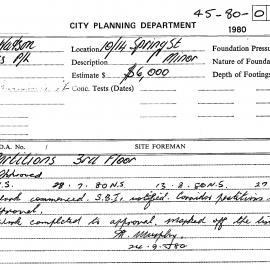 45-80-0
CITY PLANNING DEPARTMENT 1980
Location 10/14 Spring St Foundation Pressu
Description Minor Nature of Founda
Estimate $ $6,000 Depth of Footings
Conc. Tests (Dates)
D.A. No. / SITE FOREMAN
Partitions 3rd Floor
Approved
28.7.80 N.S. 13.8.80 N.S. 27
Work commenced. S.B.I. notified. Consider partitions
approval.
Work completed to approval, marked off the
M. Murphy
24.9.80